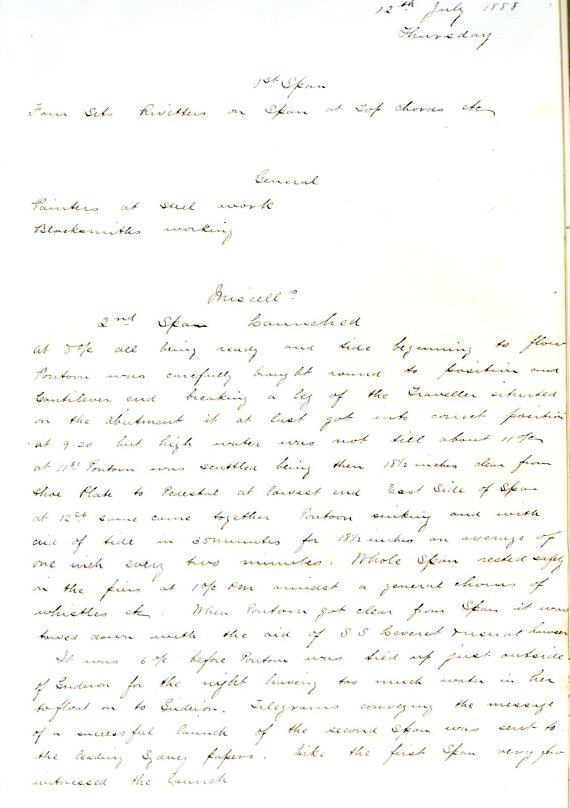 12th July 1888
Thursday
1st Span
Four Sets Rivetters on Span at Top Chords etc
General
Painters at Steel work
Blacksmiths working
Miscells
2nd Span Launched
At 8 o/c all being ready and tide beginning to flow
Pontoon was carefully bought round to position and
Cantilever end breaking a leg of the Traveller situated
on the Abutment it at last got into correct position
at 9.20 but high water was not till about 11 o/c
at Pontoon was scuttled being then 18½ inches clear from
Shoe Plate to Pedestal at lowest end East Side of Span
at same came together Pontoon sinking and with
aid of tide in 35 minutes for 18½ inches an average of
one inch every two minutes. Whole Span rested safely
on the piers at 1 o/c PM amidst a general chorus of
whistles etc. When Pontoon got clear from Span it was
towed down with the aid of S S Leveret & usual hawser
It was 6 o/c before Pontoon was tied up just outside
of Gridiron for the night having too much water in her
to float on to Gridiron. Telegrams conveying the message
of a successful launch of the second Span was sent to
the leading Sydney papers. Like the first Span very few
witnessed the launch